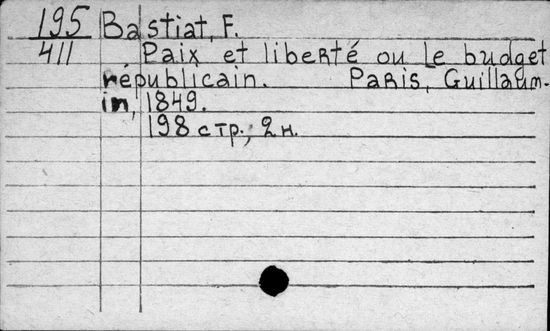 195 Bastiat, F.
411 Paix et liberté ou Le budget
républicain. Paris, Guillaum-
in, 1849.
198 стр., 2 н.